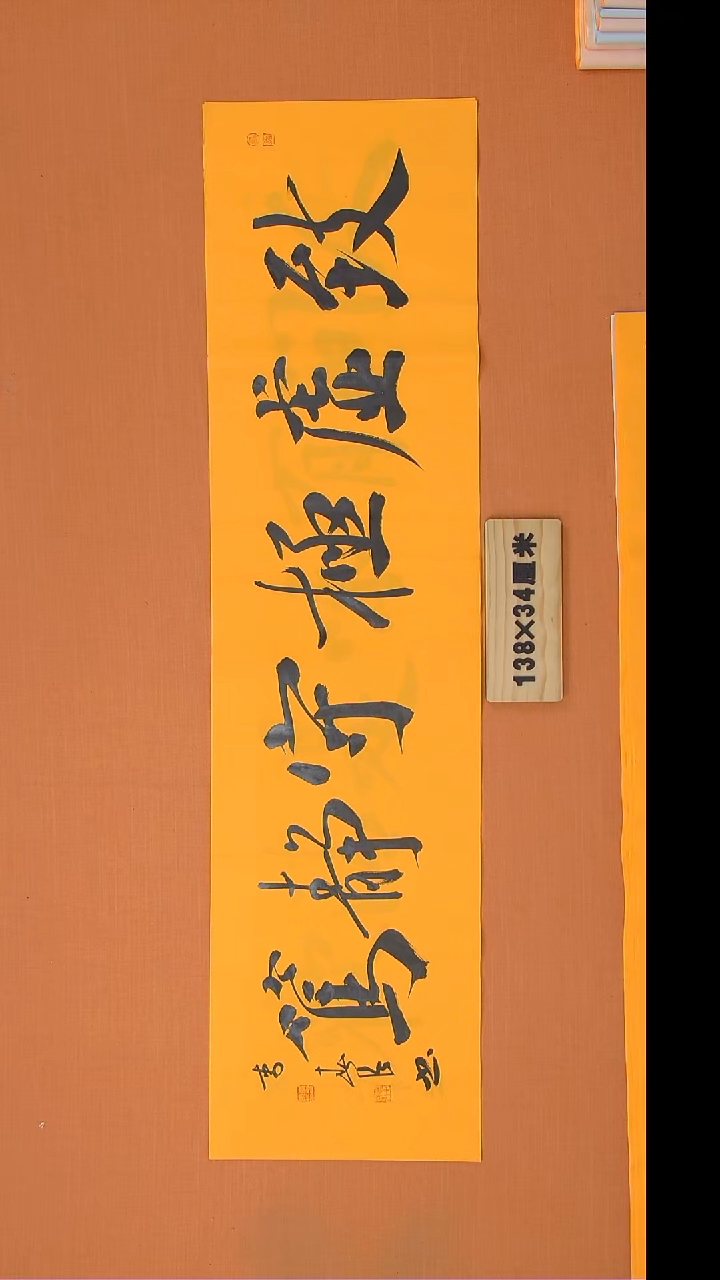 致虚極守静篤
138×34厘米